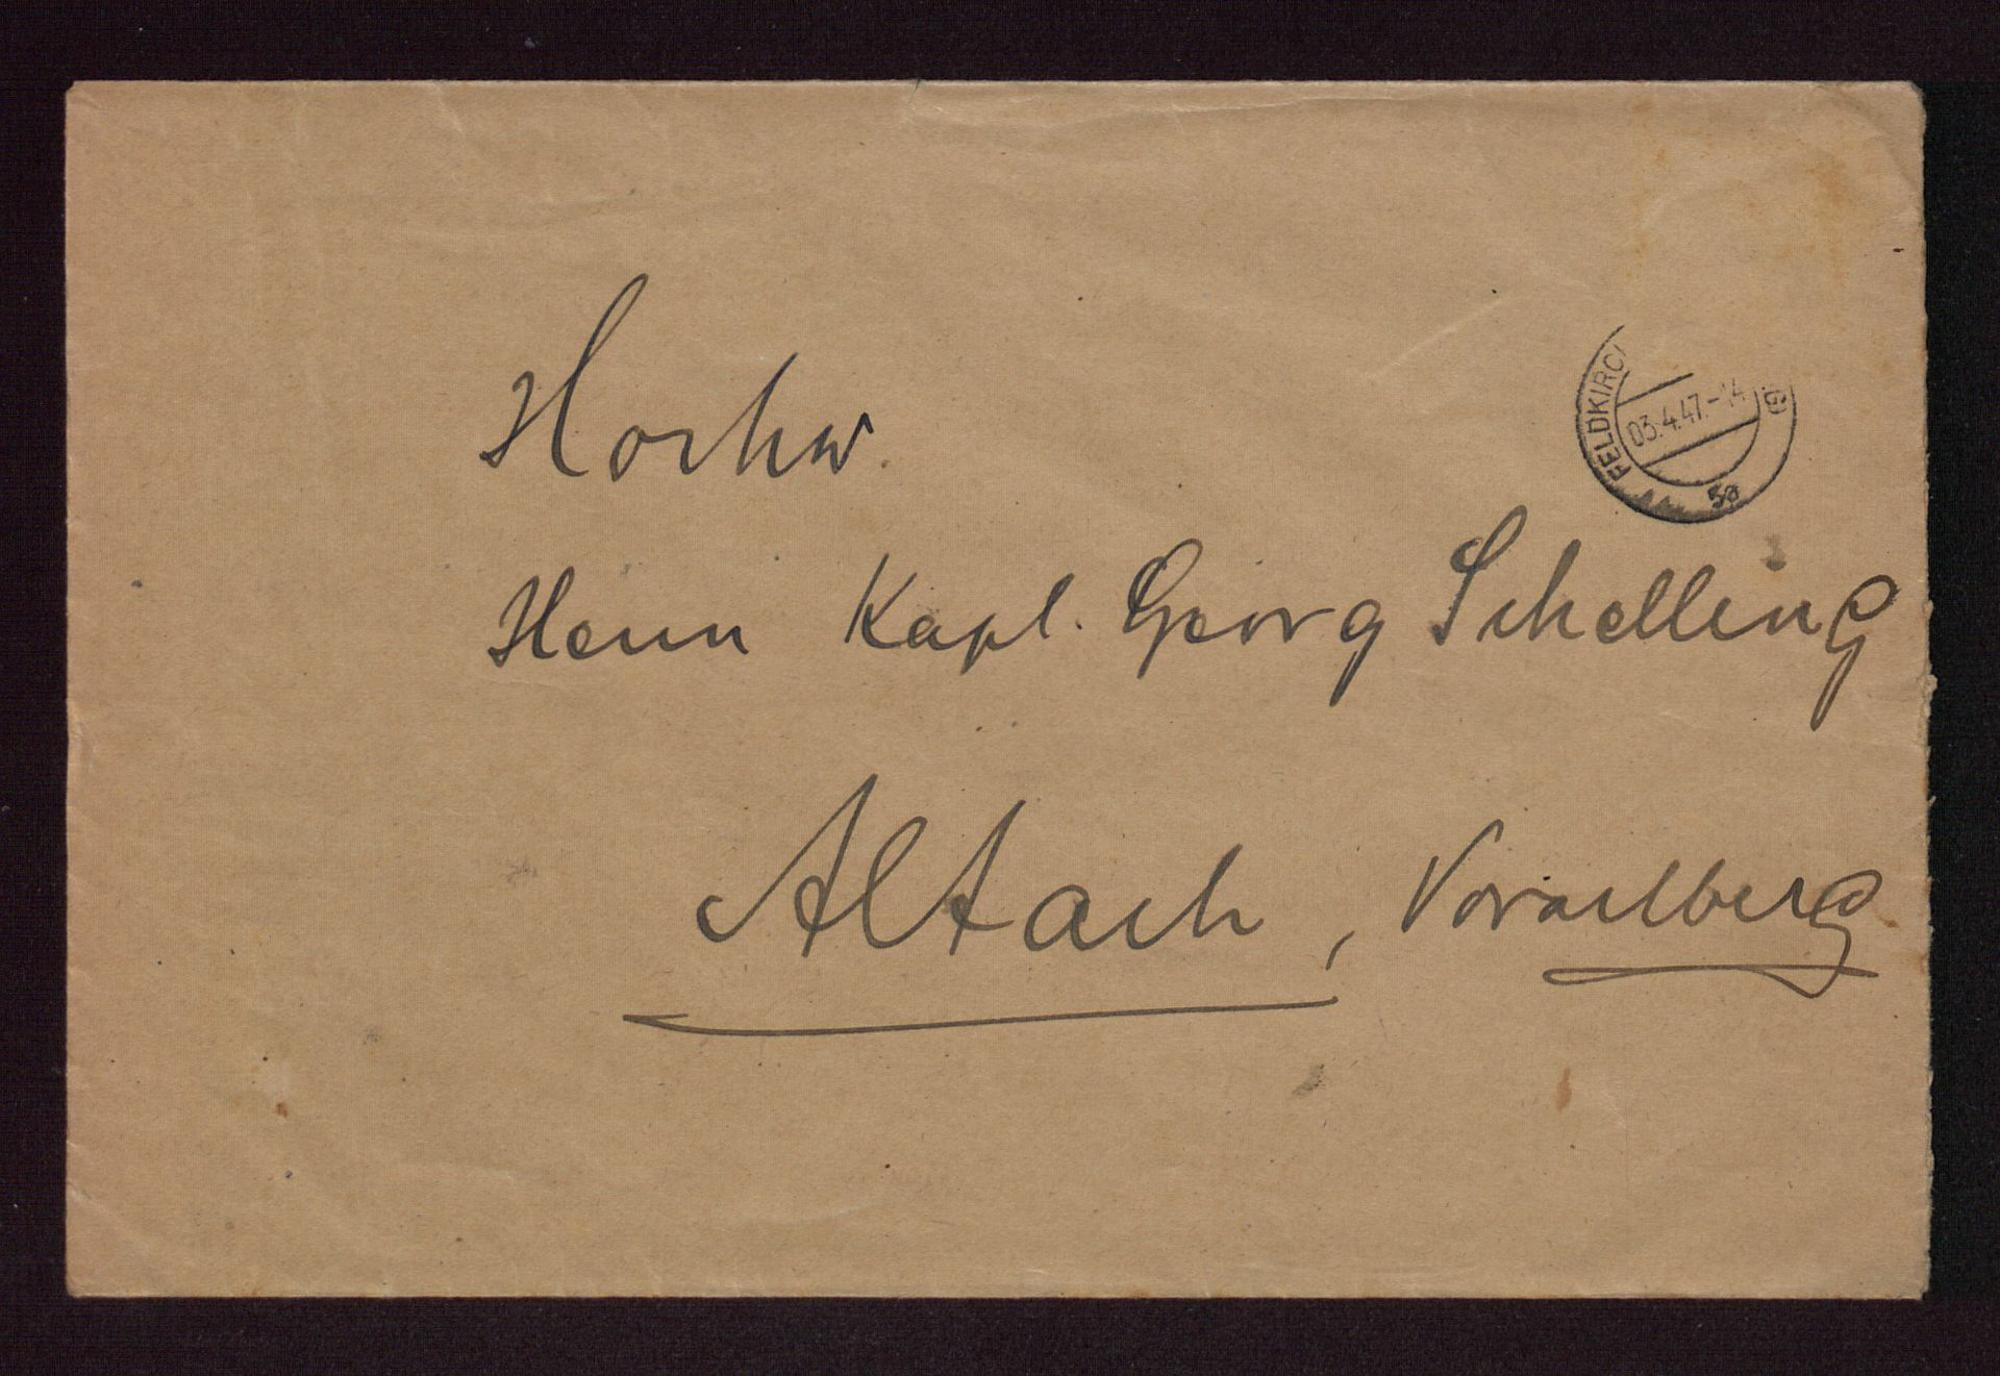 FELDKIRC
03.4.47.-14
5a
Hochw.
Herrn Kapl. Georg Schelling
Altach, Vorarlberg